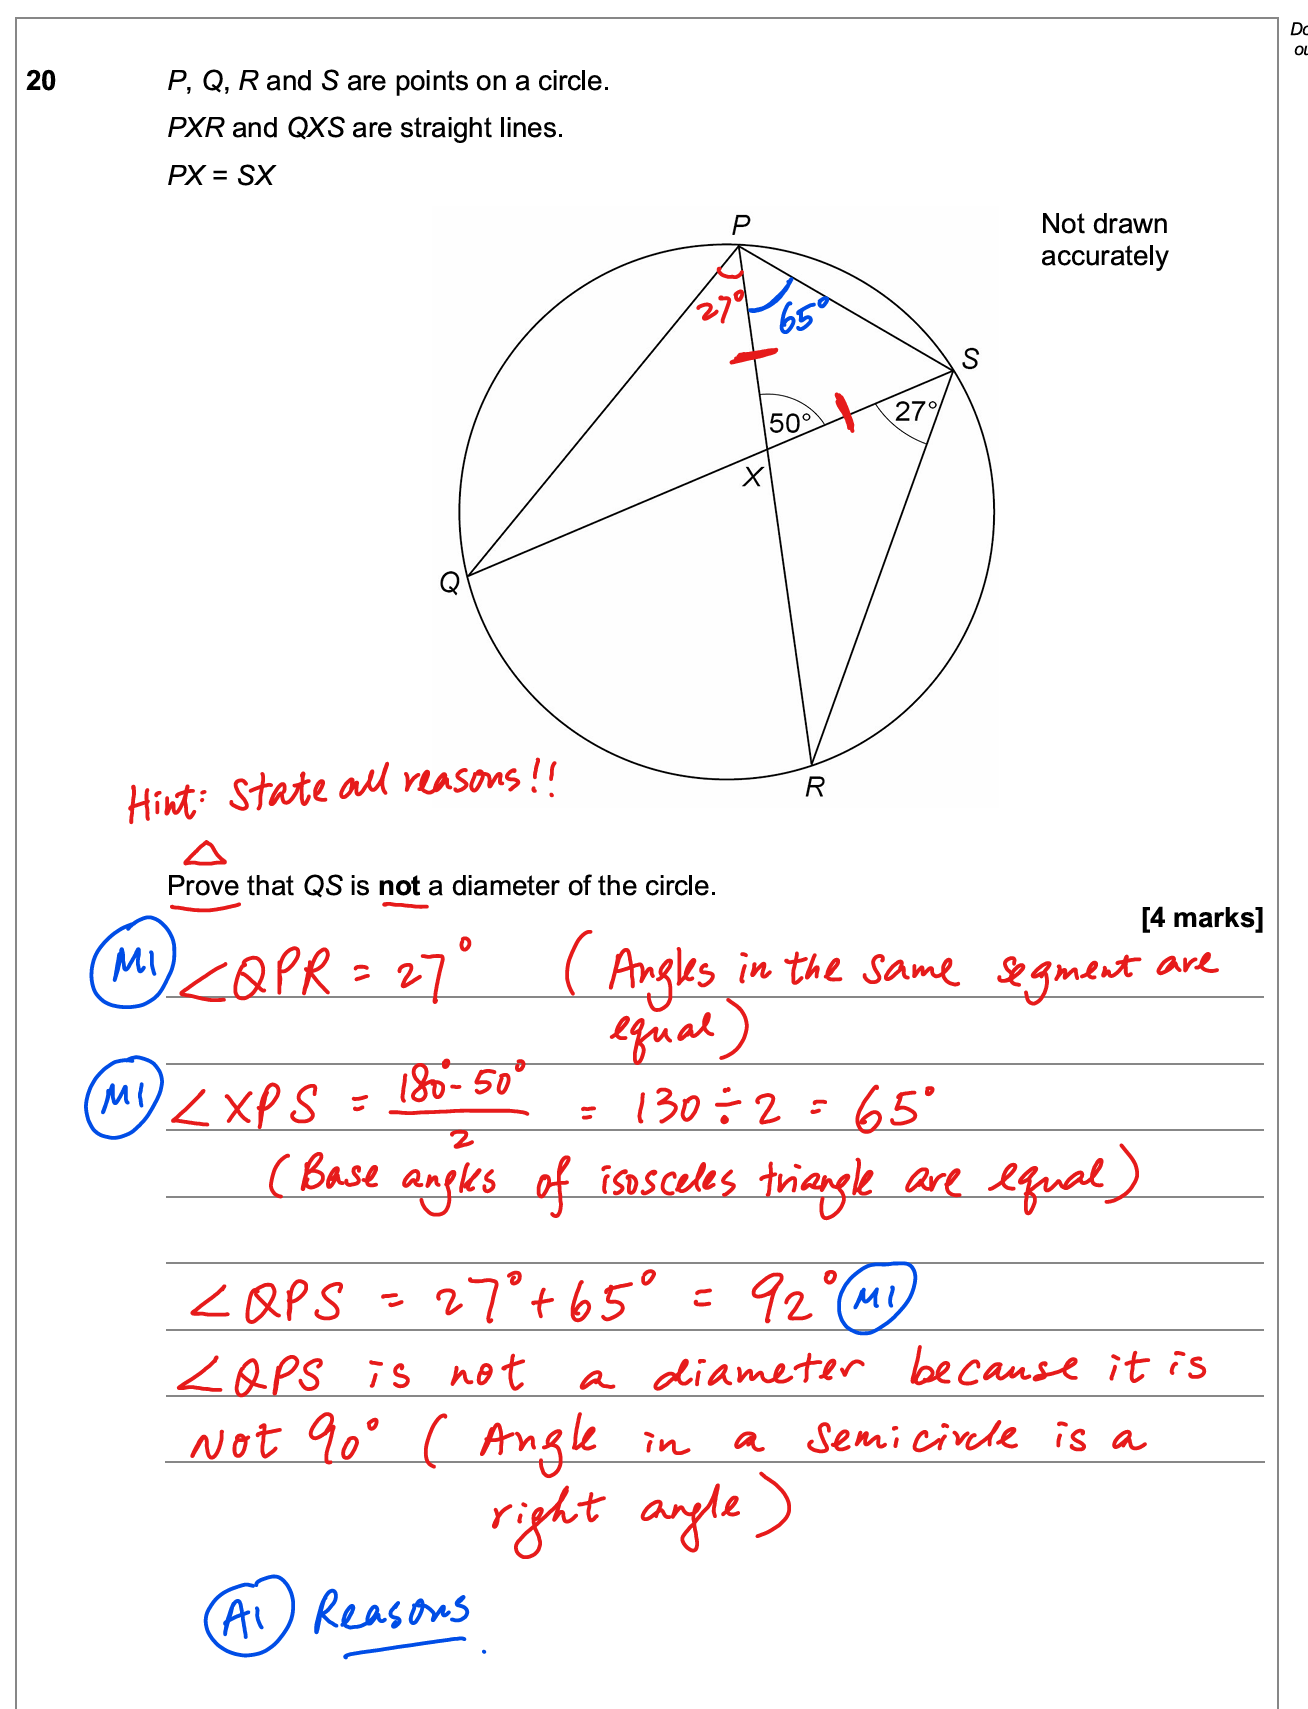 Do
ou
20 P, Q, R and S are points on a circle.
PXR and QXS are straight lines.
PX = SX
Not drawn
accurately
P
27° 65°
S
50° 27°
X
Q
R
Hint: State all reasons!!
Prove that QS is not a diameter of the circle.
[4 marks]
M1 ∠QPR = 27° (Angles in the same segment are
equal)
M1 ∠XPS = (180° - 50°)/2 = 130 ÷ 2 = 65°
(Base angles of isosceles triangle are equal)
∠QPS = 27° + 65° = 92° M1
∠QPS is not a diameter because it is
Not 90° (Angle in a semicircle is a
right angle)
A1 Reasons.